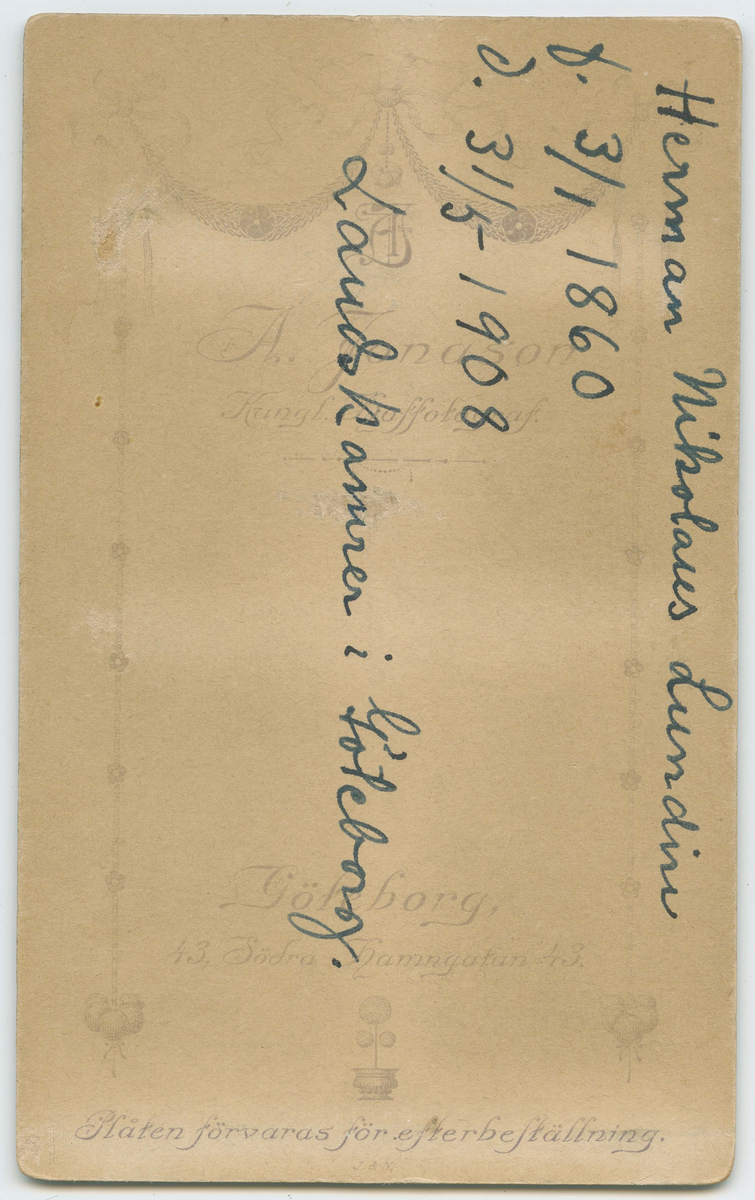 Herman Nikolaus Lundin
f. 3/1 1860
d. 31/5-1908
Landskamrer i Göteborg.
A. Jonason
Kungl. Hoffotograf.
Göteborg,
43, Södra Hamngatan 43.
Plåten förvaras för efterbeställning.